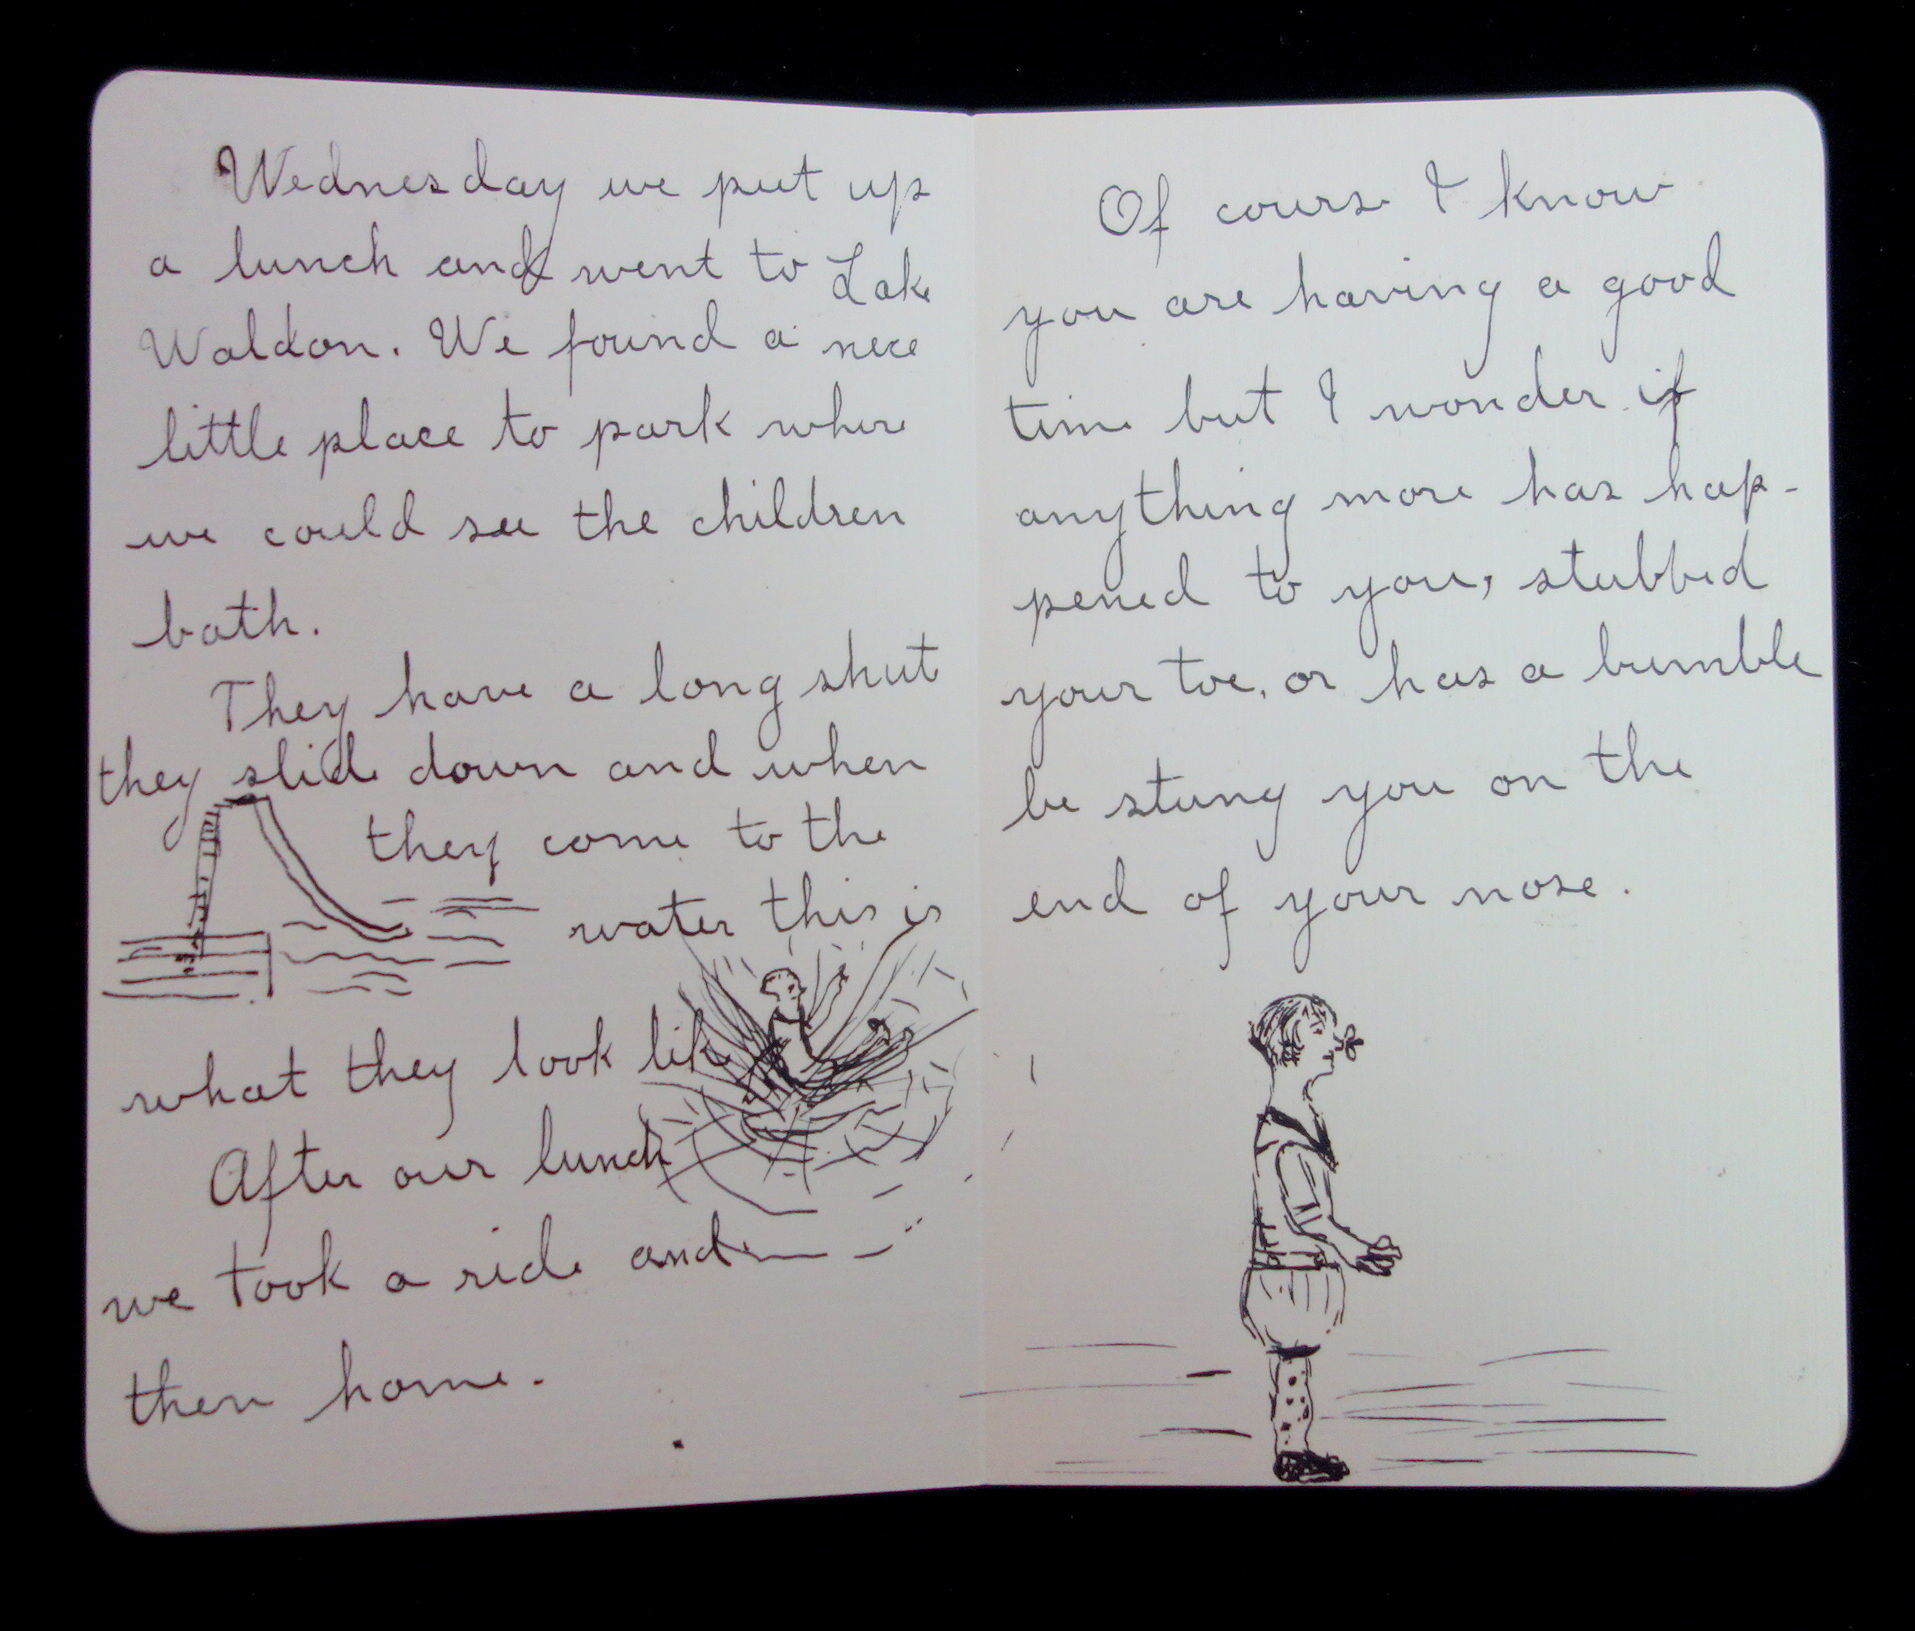 Wednesday we put up
a lunch and went to Lake
Waldon. We found a nice
little place to park where
we could see the children
bath.
They have a long shut
they slide down and when
they come to the
water this is
what they look like
After our lunch
we took a ride and
then home.
Of course I know
you are having a good
time but I wonder if
anything more has hap-
pened to you, stubbed
your toe, or has a bumble
be stung you on the
end of your nose.